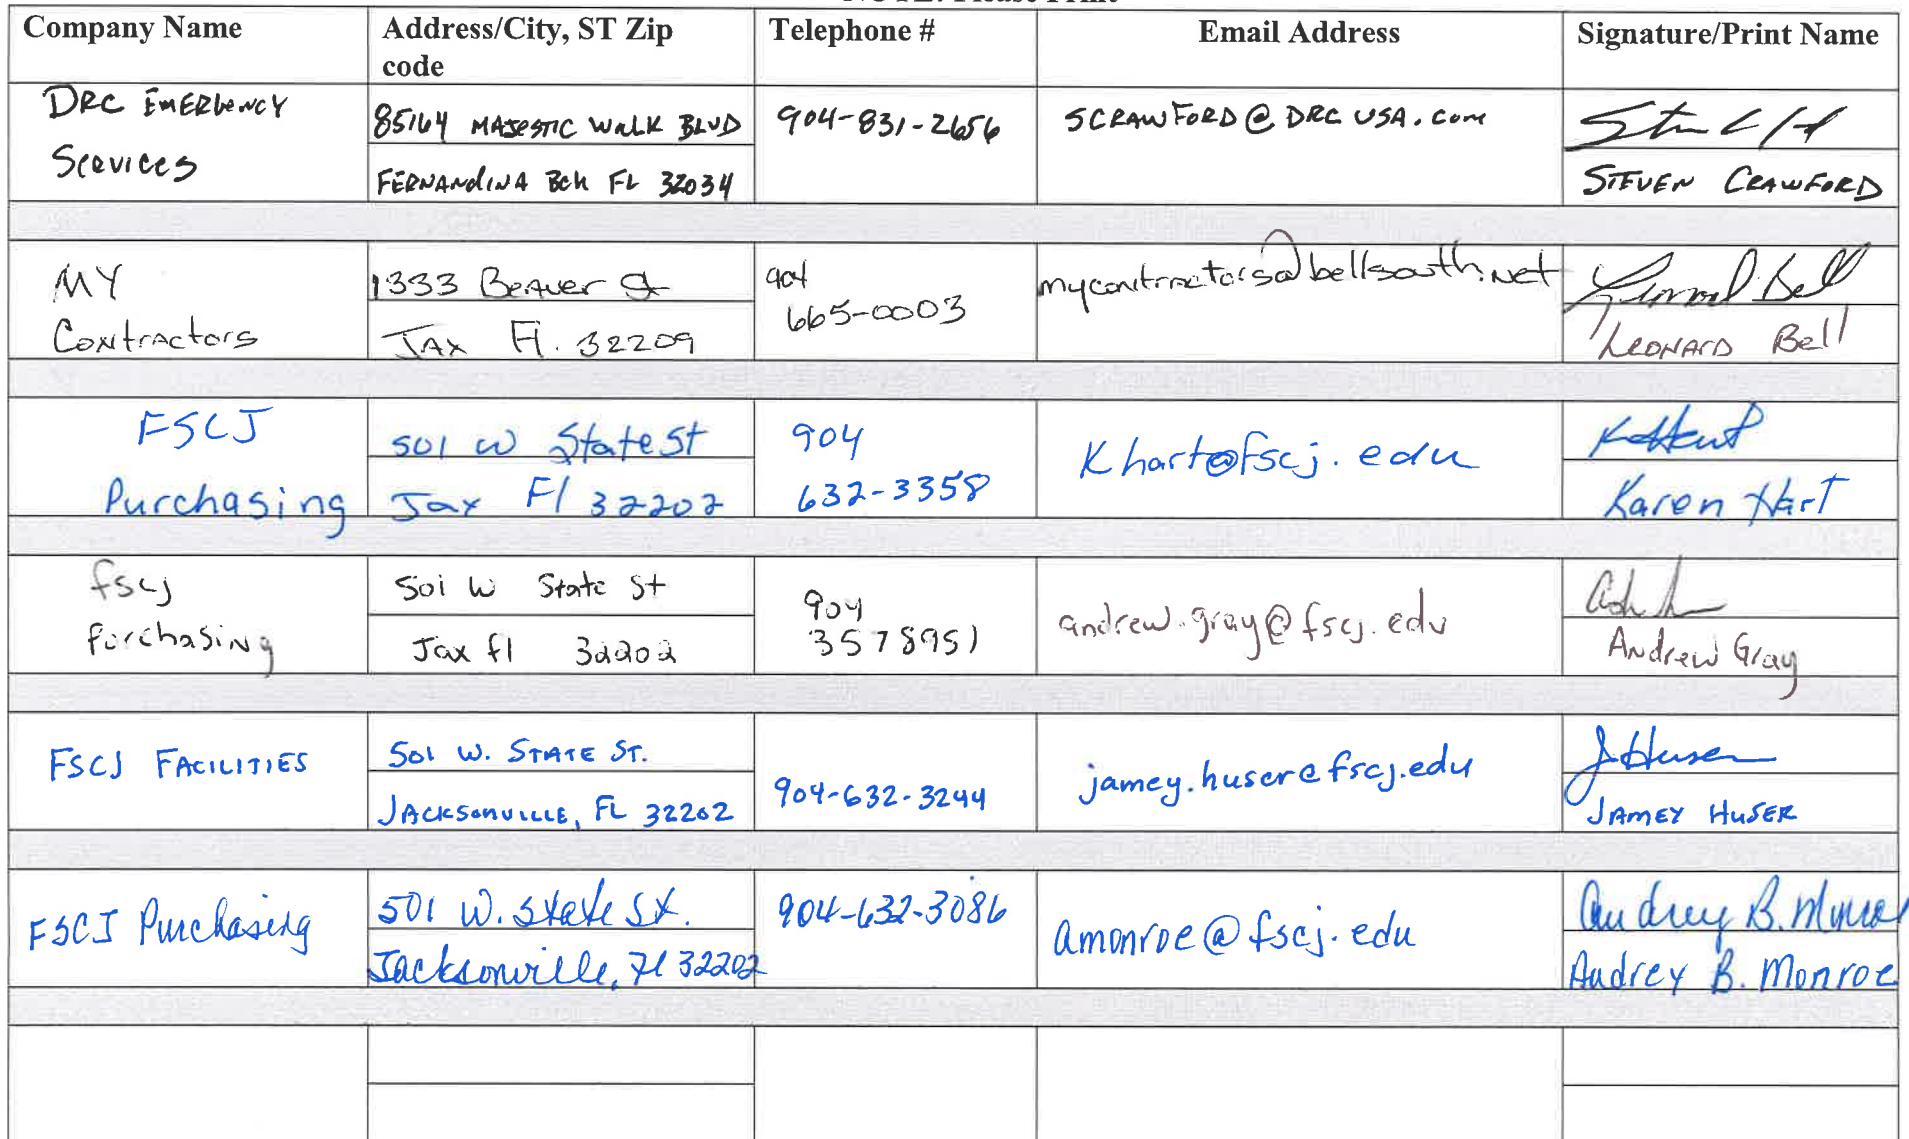 Company Name
Address/City, ST Zip
code
Telephone #
Email Address
Signature/Print Name
DRC EMERGENCY
Services
85164 MAJESTIC WALK BLVD
FERNANDINA BCH FL 32034
904-831-2656
SCRAWFORD@DRCUSA.com
STEVEN CRAWFORD
MY
Contractors
1333 Beaver St
JAX Fl. 32209
904
665-0003
mycontractors@bellsouth.net
Leonard Bell
LEONARD Bell
FSCJ
Purchasing
501 W State St
Jax Fl 32202
904
632-3358
Khart@fscj.edu
K Hart
Karen Hart
fscj
Purchasing
501 W State St
Jax fl 32202
904
3578951
andrew.gray@fscj.edu
Andrew Gray
FSCJ FACILITIES
501 W. STATE ST.
JACKSONVILLE, FL 32202
904-632-3244
jamey.huser@fscj.edu
J Huser
JAMEY HUSER
FSCJ Purchasing
501 W. State St.
Jacksonville, Fl 32202
904-632-3086
amonroe@fscj.edu
Audrey B. Monroe
Audrey B. Monroe